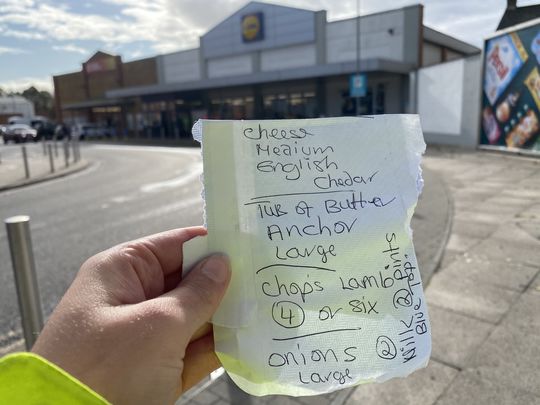 Cheese
Medium
English
Chedar
1 tub of Butter
Anchor
Large
Chops Lamb
④ or six
onions
Large
Milk ② Pints
② Blue Top.